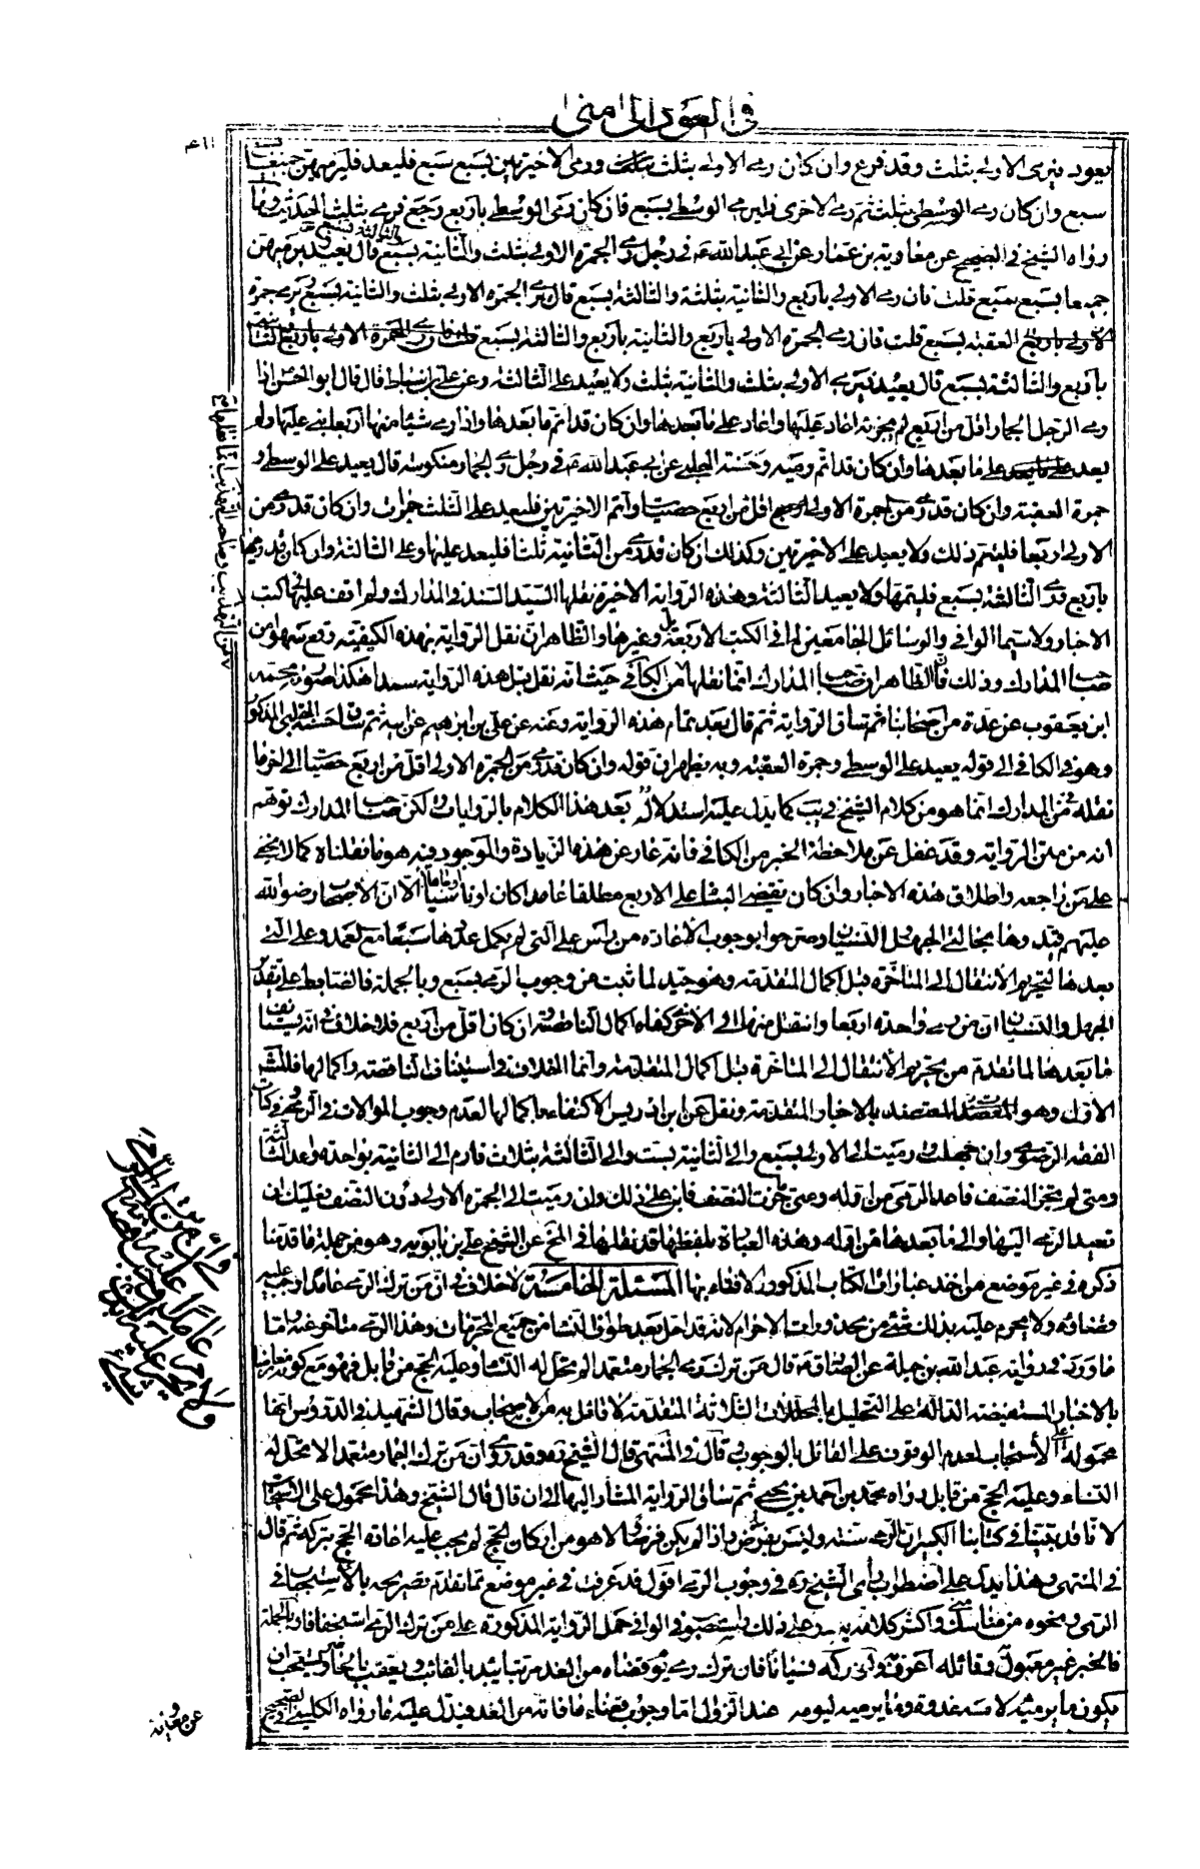 في العود الى منى
٤١١
يعود فيرمى الاولى بثلث وقد فرغ وان كان رمى الاولى بثلث ورمى الاخيرتين بسبع سبع فليعد فليرمهن جميعا
سبع وان كان رمى الوسطى بثلث ثم رمى الاخرى فليرمى الوسطى بسبع فان كان رمى الوسطى باربع رجع فرمى بثلث
رواه الشيخ في الصحيح عن معاوية بن عمار عن ابي عبد الله ع في رجل رمى الجمرة الاولى بثلث والثانية بسبع والثالثة بسبع قال يعيد يرميهن
جميعا بسبع سبع قلت فان رمى الاولى باربع والثانية بثلثة والثالثة بسبع قال يرمى الجمرة الاولى بثلث والثانية بسبع يرمى جمرة
العقبة بسبع قلت فان رمى الجمرة الاولى باربع والثانية باربع والثالثة بسبع
باربع والثالثة بسبع قال يعيد فيرمى الاولى بثلث والثانية بثلث ولا يعيد على الثالثة وعن علي بن اسباط قال قال ابو الحسن اذا
رمى الرجل الجمار اقل من اربع لم يجزئه اعاد عليها واعاد على ما بعدها وان كان قد اتم ما بعدها واذا رمى شيئا منها اربعا بنى عليها ولم
يعد على ما بعدها وان كان قد اتم رميه وحسنة الحلبي عن ابي عبد الله ع في رجل رمى الجمار منكوسة قال يعيد على الوسطى و
جمرة العقبة وان كان قد رمى من الجمرة الاولى اقل من اربع حصيات واتم الاخيرتين فليعد على الثلث جمرات وان كان قد رمى من
الاولى اربعا فليتم ذلك ولا يعيد على الاخيرتين وكذلك ان كان قد رمى من الثانية ثلثا فليعد عليها وعلى الثالثة وان كان قد رميها
باربع ورمى الثالثة بسبع فليتمها ولا يعيد الثالثة وهذه الرواية الاخيرة نقلها السيد السند في المدارك ولم اقف عليها في كتب
الاخبار ولا سيما الوافي والوسائل الجامعين لما في الكتب الاربعة وغيرها والظاهر ان نقل الرواية بهذه الكيفية وقع سهوا من
صاحب المدارك وذلك فان الظاهر ان صاحب المدارك انما نقلها من الكافي حيث انه نقل قبل هذه الرواية سندا هكذا صورته محمد
ابن يعقوب عن عدة من اصحابنا ثم ساق الرواية ثم قال بعد تمام هذه الرواية وعنه عن علي بن ابرهيم عن ابيه ثم ساق حسنة الحلبي المذكورة
وهو في الكافي الى قوله يعيد على الوسطى وجمرة العقبة وبه يظهر ان قوله وان كان قد رمى من الجمرة الاولى اقل من اربع حصيات الى اخر ما
نقله في المدارك انما هو من كلام الشيخ في يب كما يدل عليه استدلاله بعد هذا الكلام بالروايات ولكن صاحب المدارك توهم
انه من متن الرواية وقد غفل عن ملاحظة الخبر من الكافي فانه عار عن هذه الزيادة والموجود فيه هو ما نقلناه كما لا يخفى
على من راجعه واطلاق هذه الاخبار وان كان يقتضى البناء على الاربع مطلقا عامدا كان او ناسيا او جاهلا الا ان الاصحاب رضوان الله
عليهم قيدوها بحالتي الجهل والنسيان وصرحوا بوجوب الاعادة من راس على التي لم يكمل عددها سبعا مع تعمد وعلى التي
بعدها لتحريم الانتقال الى المتاخرة قبل اكمال المتقدمة وهو جيد لما ثبت من وجوب الرمى بسبع وبالجملة فالضابط على تقدير
الجهل والنسيان ان من رمى واحدة اربعا وانتقل منها الى الاخرى كفاه اكمال الناقصة وان كان اقل من اربع فلا خلاف في انه يستانف
ما بعدها لما تقدم من تحريم الانتقال الى المتاخرة قبل اكمال المتقدمة وانما الخلاف في استيناف الناقصة واكمالها فالمشهور
الاول وهو المعتضد بالاخبار المتقدمة ونقل عن ابن ادريس الاكتفاء باكمالها لعدم وجوب الموالات في الرمى وفي كتاب
الفقه الرضوي وان جهلت ورميت الى الاولى بسبع والى الثانية بست والى الثالثة بثلاث فارم الى الثانية بواحدة واعد الثالثة
ومتى لم تجز النصف فاعد الرمى من اوله ومتى جزت النصف فابن على ذلك وان رميت الى الجمرة الاولى دون النصف فعليك ان
تعيد الرمى اليها والى ما بعدها من اوله وهذه العبارة بلفظها قد نقلها في المختلف عن الشيخ علي بن بابويه وهو من جملة ما قدمنا
ذكره في غير موضع من اخذ عبارات الكتاب المذكور والافتاء بها المسئلة الخامسة لا خلاف في ان من ترك الرمى عامدا وجب عليه
قضاؤه ولا يحرم عليه بذلك شئ من محذورات الاحرام لانه قد احل بعد طواف النسا من جميع المحرمات وهذا الرمى متاخر عنه واما
ما ورد في رواية عبد الله بن جبلة عن الصادق ع قال من ترك رمى الجمار متعمدا لم تحل له النساء وعليه الحج من قابل فهو مع كونه معارضا
بالاخبار المستفيضة الدالة على التحليل بالمحللات الثلاثة المتقدمة لا قائل به من الاصحاب وقال الشهيد في الدروس انها
محمولة على الاستحباب لعدم الوقوف على القائل بالوجوب قال في المنتهى قال الشيخ ره وقد روى ان من ترك الجمار متعمدا لا تحل له
النساء وعليه الحج من قابل رواه محمد بن احمد بن يحيى ثم ساق الرواية المشار اليها الى ان قال قال الشيخ وهذا محمول على الاستحباب
لانا قد بينا في كتابنا الكبير ان الرمى سنة وليس بفرض واذا لم يكن فرضا ولا هو من اركان الحج لم يجب عليه اعادة الحج بتركه ثم قال
في المنتهى وهذا يدل على اضطراب راى الشيخ ره في وجوب الرمى اقول قد عرفت في غير موضع مما تقدم تصريحه بالاستحباب في
الرمى ونحوه من مناسك منى واكثر كلامه يدل على ذلك واستصوب في الوافي حمل الرواية المذكورة على من ترك الرمى استخفافا وبالجملة
فالخبر غير معمول وقائله اعرف ولو تركه نسيانا فان ترك رمى يوم قضاه من الغد مرتبا يبدا بالفائت ويعقب بالحاضر ويستحب ان
يكون ما يرميه لامسه غدوة وما يرميه ليومه عند الزوال اما وجوب قضاء ما فاته من الغد فيدل عليه ما رواه الكليني في الصحيح
عن معوية